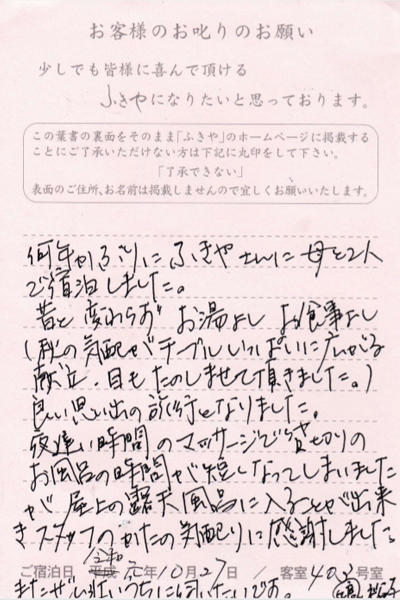 お客様のお叱りのお願い
少しでも皆様に喜んで頂ける
ふきやになりたいと思っております。
この葉書の裏面をそのまま「ふきや」のホームページに掲載する
ことにご了承いただけない方は下記に丸印をして下さい。
「了承できない」
表面のご住所、お名前は掲載しませんので宜しくお願いいたします。
何年かぶりにふきやさんに母と2人
で宿泊しました。
昔と変わらず お湯よし お食事よし
(秋の気配がテーブルいっぱいに広がる
献立、目もたのしませて頂きました。)
良い思い出の旅行となりました。
夜遅い時間のマッサージで貸切りの
お風呂の時間が短くなってしまいました
が 屋上の露天風呂に入ることが出来
きスタッフのかたの気配りに感謝しました
ご宿泊日 平成 令和 元年10月27日 / 客室 403号室
またぜひ 近いうちに伺いたいです。